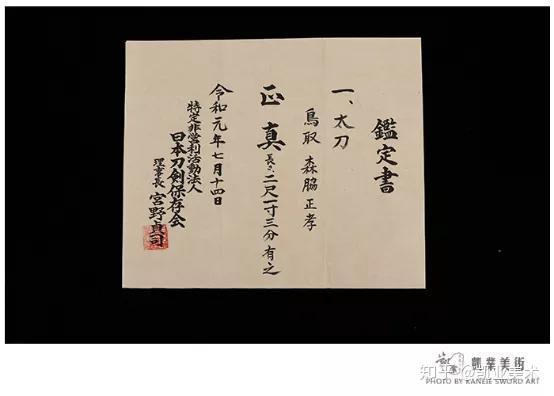 鑑定書
一、太刀
鳥取 森脇正孝
正真 長さ二尺一寸三分有之
令和元年七月十四日
特定非営利活動法人
日本刀剣保存会
理事長 宮野貞司
凱業美術
知乎 @凯业美术
PHOTO BY KANEIE SWORD ART